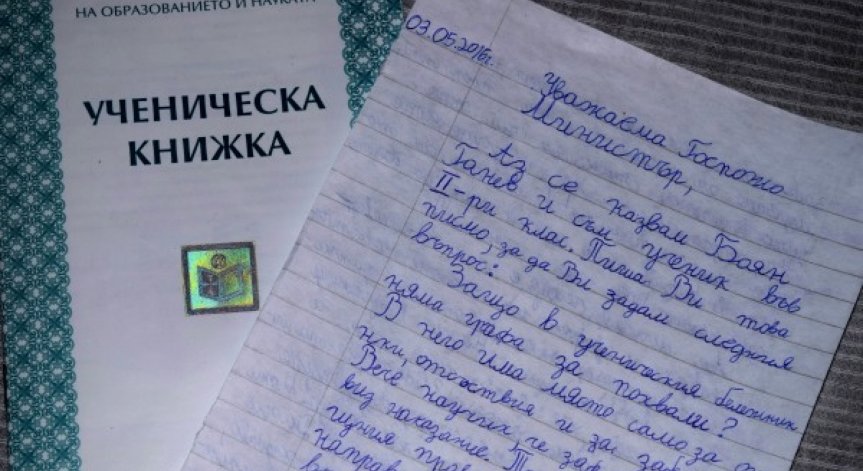 НА ОБРАЗОВАНИЕТО И НАУКАТА
УЧЕНИЧЕСКА
КНИЖКА
03.05.2016г.
Уважаема Госпожо
Министър,
Аз се казвам Боян
Ганев и съм ученик във
II-ри клас. Пиша Ви това
писмо, за да Ви задам следния
въпрос:
Защо в ученическия бележник
няма графа за похвали?
В него има място само за
отсъствия и за
Вече научих, че
наказание.